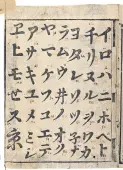 イロハニホヘト
チリヌルヲワカ
ヨタレソツ子ナ
ラムウ井ノオク
ヤマケフコエテ
アサキユメミシ
ヱヒモセス京